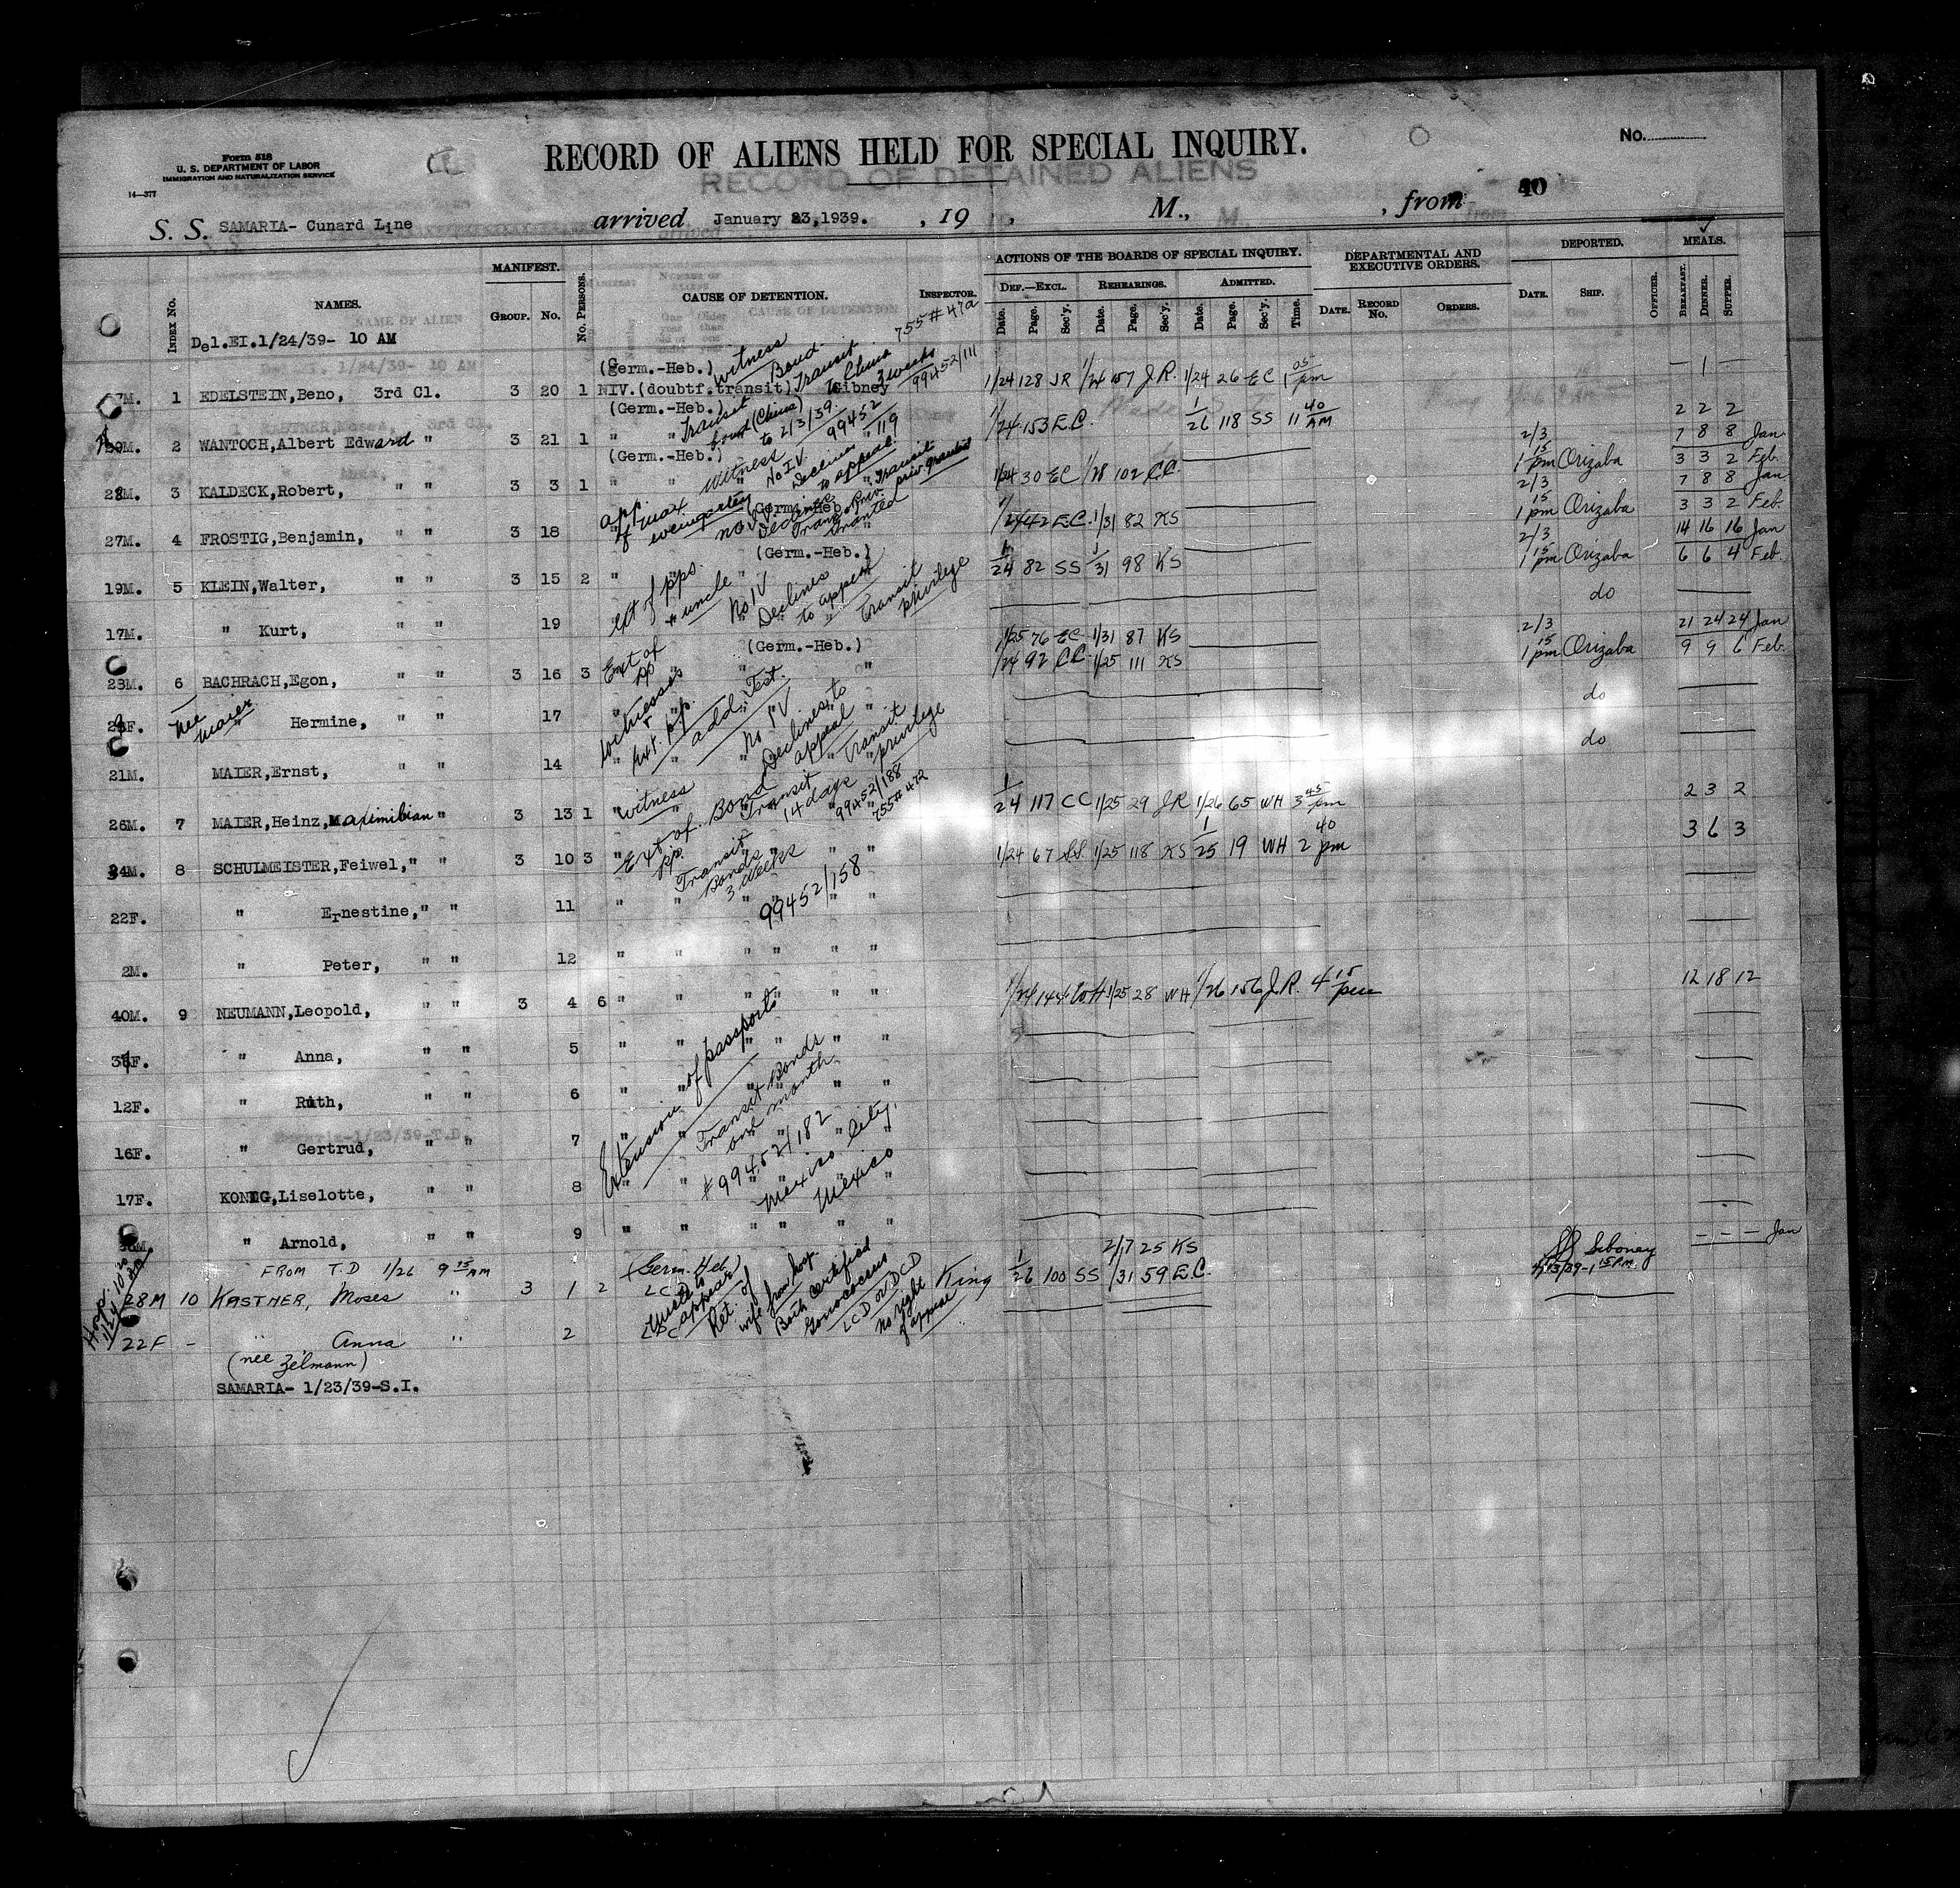 Form 518
U. S. DEPARTMENT OF LABOR
IMMIGRATION AND NATURALIZATION SERVICE
14—377
RECORD OF ALIENS HELD FOR SPECIAL INQUIRY.
RECORD OF DETAINED ALIENS
No.
40
S. S. SAMARIA- Cunard Line arrived January 23,1939. , 19 , M., , from
INDEX No. NAMES. MANIFEST. GROUP. No. No. PERSONS. CAUSE OF DETENTION. INSPECTOR. ACTIONS OF THE BOARDS OF SPECIAL INQUIRY. DEPARTMENTAL AND EXECUTIVE ORDERS. DEPORTED. MEALS.
DEF.—EXCL. REHEARINGS. ADMITTED.
Date. Page. Sec'y. Date. Page. Sec'y. Date. Page. Sec'y. Time. DATE. RECORD No. ORDERS. DATE. SHIP. OFFICER. BREAKFAST. DINNER. SUPPER.
Del.EI.1/24/39- 10 AM
755#47a
(Germ.-Heb.) witness Bond Transit to China 3 weeks 99452/111
1 EDELSTEIN,Beno, 3rd Cl. 3 20 1 NIV.(doubtf.transit) Gibney 1/24 128 JR 1/24 157 J.R. 1/24 26 EC 1 05 pm — 1 —
(Germ.-Heb.) Transit bond (China) to 2/3/39. 99452/119
2 WANTOCH,Albert Edward " 3 21 1 " " 1/24 153 E.C. 1/26 118 SS 11 40 AM 2 2 2
(Germ.-Heb.) witness No I.V. Declines to appeal. Transit priv. granted
3 KALDECK,Robert, " " 3 3 1 " " 1/24 30 EC 1/28 102 CC. 2/3 1 15 pm Orizaba 7 8 8 Jan 3 3 2 Feb.
app. of Max Weingarten no I.V. Declines Trans. Priv. Granted
(Germ.-Heb.)
27M. 4 FROSTIG,Benjamin, " " 3 18 1/24 42 E.C. 1/31 82 KS 2/3 1 15 pm Orizaba 7 8 8 Jan 3 3 2 Feb.
(Germ.-Heb.)
19M. 5 KLEIN,Walter, " " 3 15 2 " 1/24 82 SS 1/31 98 KS 2/3 1 15 pm Orizaba 14 16 16 Jan 6 6 4 Feb.
ext of pps. + uncle No IV Declines to appeal Transit privilege
17M. " Kurt, " " 19 do
(Germ.-Heb.)
1/25 76 EC 1/31 87 KS
23M. 6 BACHRACH,Egon, " " 3 16 3 Ext of pp 1/24 92 CC 1/25 111 KS 2/3 1 15 pm Orizaba 21 24 24 Jan 9 9 6 Feb.
nee Maier " Hermine, " " 17 witnesses + ext. pp. add. Test. do
21M. MAIER,Ernst, " " 14 No IV Declines to appeal Transit privilege do
26M. 7 MAIER,Heinz,Maximilian " 3 13 1 " witness Bond Transit 14 days 99452/188 755#472 1/24 117 CC 1/25 29 JR 1/26 65 WH 3 45 pm 2 3 2
8 SCHULMEISTER,Feiwel, " " 3 10 3 " Ext of pp. Transit Bonds 3 weeks 1/24 67 SS 1/25 118 KS 1/25 19 WH 2 40 pm 3 6 3
22F. " Ernestine, " " 11 " " 99452/158
2M. " Peter, " " 12 " "
40M. 9 NEUMANN,Leopold, " " 3 4 6 " " 1/24 144 WH 1/25 28 WH 1/26 156 J.R. 4 15 pm 12 18 12
" Anna, " " 5 " "
12F. " Ruth, " " 6 " "
16F. " Gertrud, " " 7 " "
Extension of passports Transit Bonds one month #99452/182 Mexico City, Mexico
17F. KONIG,Liselotte, " " 8 " "
" Arnold, " " 9 " "
FROM T.D 1/26 9 15 AM
Hosp. 1/24 10 20
28M 10 KASTNER, Moses " 3 1 2 (Germ. Heb) LCD King 1/26 100 SS 2/7 25 KS 1/31 59 E.C. SS Siboney 1 15 P.M. - - - Jan
Ret. of wife from hosp. Both certified Gonococcus LCD or DCD no right of appeal
22F - " Anna " 2
(née Zelmann)
SAMARIA- 1/23/39-S.I.